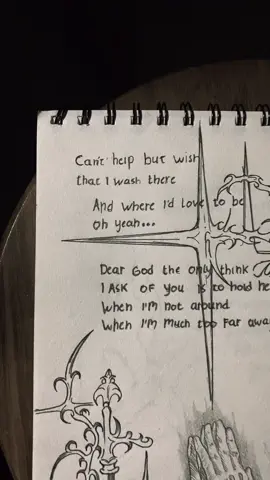 Can't help but wish
that I wash there
And where I'd love to be
oh yeah...
Dear God the only think
I ASK OF you is to hold he
When I'M not around
When I'M Much too Far away